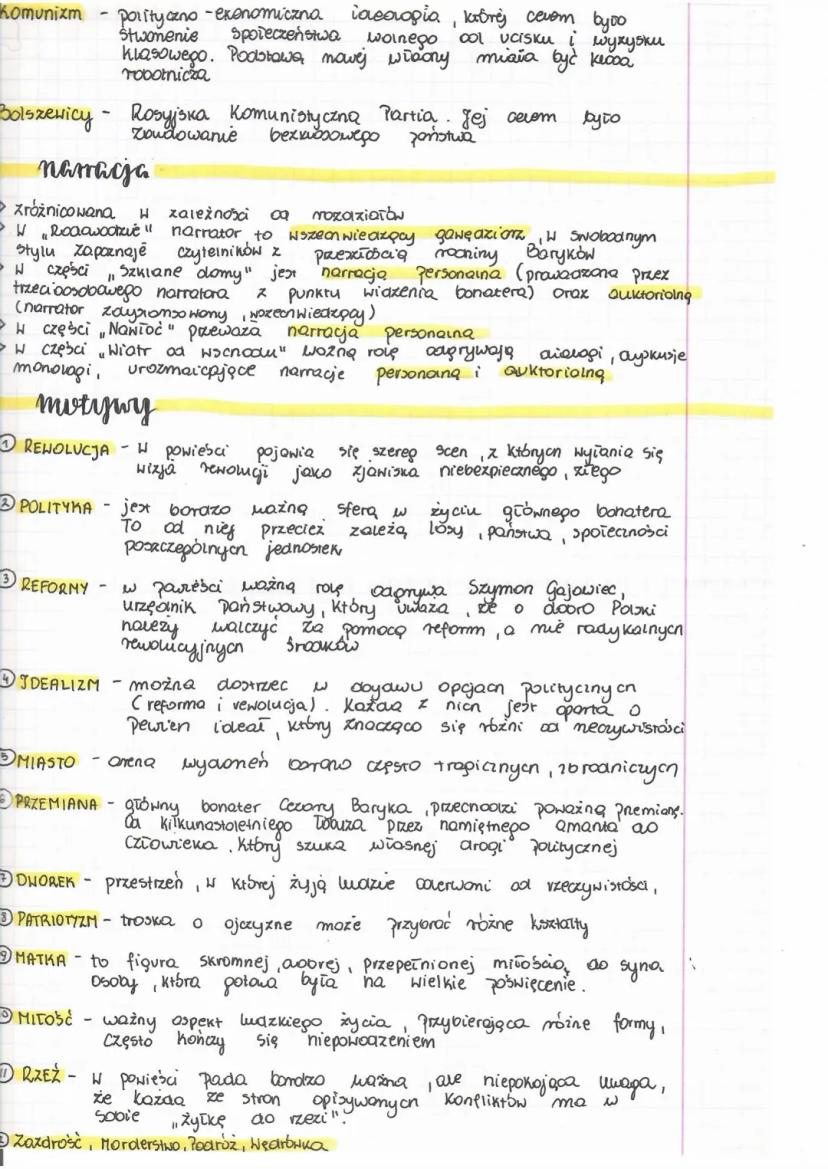 Komunizm - polityczno-ekonomiczna ideologia, której celem było
stworzenie społeczeństwa wolnego od ucisku i wyzysku
klasowego. Podstawą nowej władzy miała być klasa
robotnicza
Bolszewicy - Rosyjska Komunistyczną Partia. Jej celem było
zbudowanie bezklasowego państwa
narracja
> zróżnicowana w zależności od rozdziałów
> W „Rodowodzie" narrator to wszechwiedzący gawędziarz, w swobodnym
stylu zapoznaje czytelników z przeszłością rodziny Baryków
> W części „Szklane domy" jest narracja personalna (prowadzona przez
trzecioosobowego narratora z punktu widzenia bohatera) oraz auktorialną
(narrator zdystansowany, wszechwiedzący)
> W części „Nawłoć" przeważa narracja personalna
> W części „Wiatr od wschodu" ważną rolę odgrywają dialogi, dyskusje
monologi, urozmaicające narrację personalną i auktorialną
motywy
① REWOLUCJA - W powieści pojawia się szereg scen, z których wyłania się
wizja rewolucji jako zjawiska niebezpiecznego, złego
② POLITYKA - jest bardzo ważną sferą w życiu głównego bohatera
To od niej przecież zależą losy, państwa, społeczności
poszczególnych jednostek
③ REFORMY - w powieści ważną rolę odgrywa Szymon Gajowiec,
urzędnik państwowy, który uważa, że o dobro Polski
należy walczyć za pomocą reform, a nie radykalnych
rewolucyjnych środków
④ IDEALIZM - można dostrzec w obydwu opcjach politycznych
(reforma i rewolucja). Każda z nich jest oparta o
pewien ideał, który znacząco się różni od rzeczywistości
⑤ MIASTO - arena wydarzeń bardzo często tragicznych, zbrodniczych
⑥ PRZEMIANA - główny bohater Cezary Baryka, przechodzi poważną przemianę.
Od kilkunastoletniego łobuza przez namiętnego amanta do
człowieka, który szuka własnej drogi politycznej
⑦ DWOREK - przestrzeń, w której żyją ludzie oderwani od rzeczywistości,
⑧ PATRIOTYZM - troska o ojczyznę może przybrać różne kształty
⑨ MATKA - to figura skromnej, dobrej, przepełnionej miłością do syna
osoby, która gotowa była na wielkie poświęcenie.
⑩ MIŁOŚĆ - ważny aspekt ludzkiego życia, przybierająca różne formy,
często kończy się niepowodzeniem
⑪ RZEŹ - W powieści pada bardzo ważna, ale niepokojąca uwaga,
że każda ze stron opisywanych konfliktów ma w
sobie „żyłkę do rzezi".
⑫ Zazdrość, Morderstwo, Podróż, Wędrówka